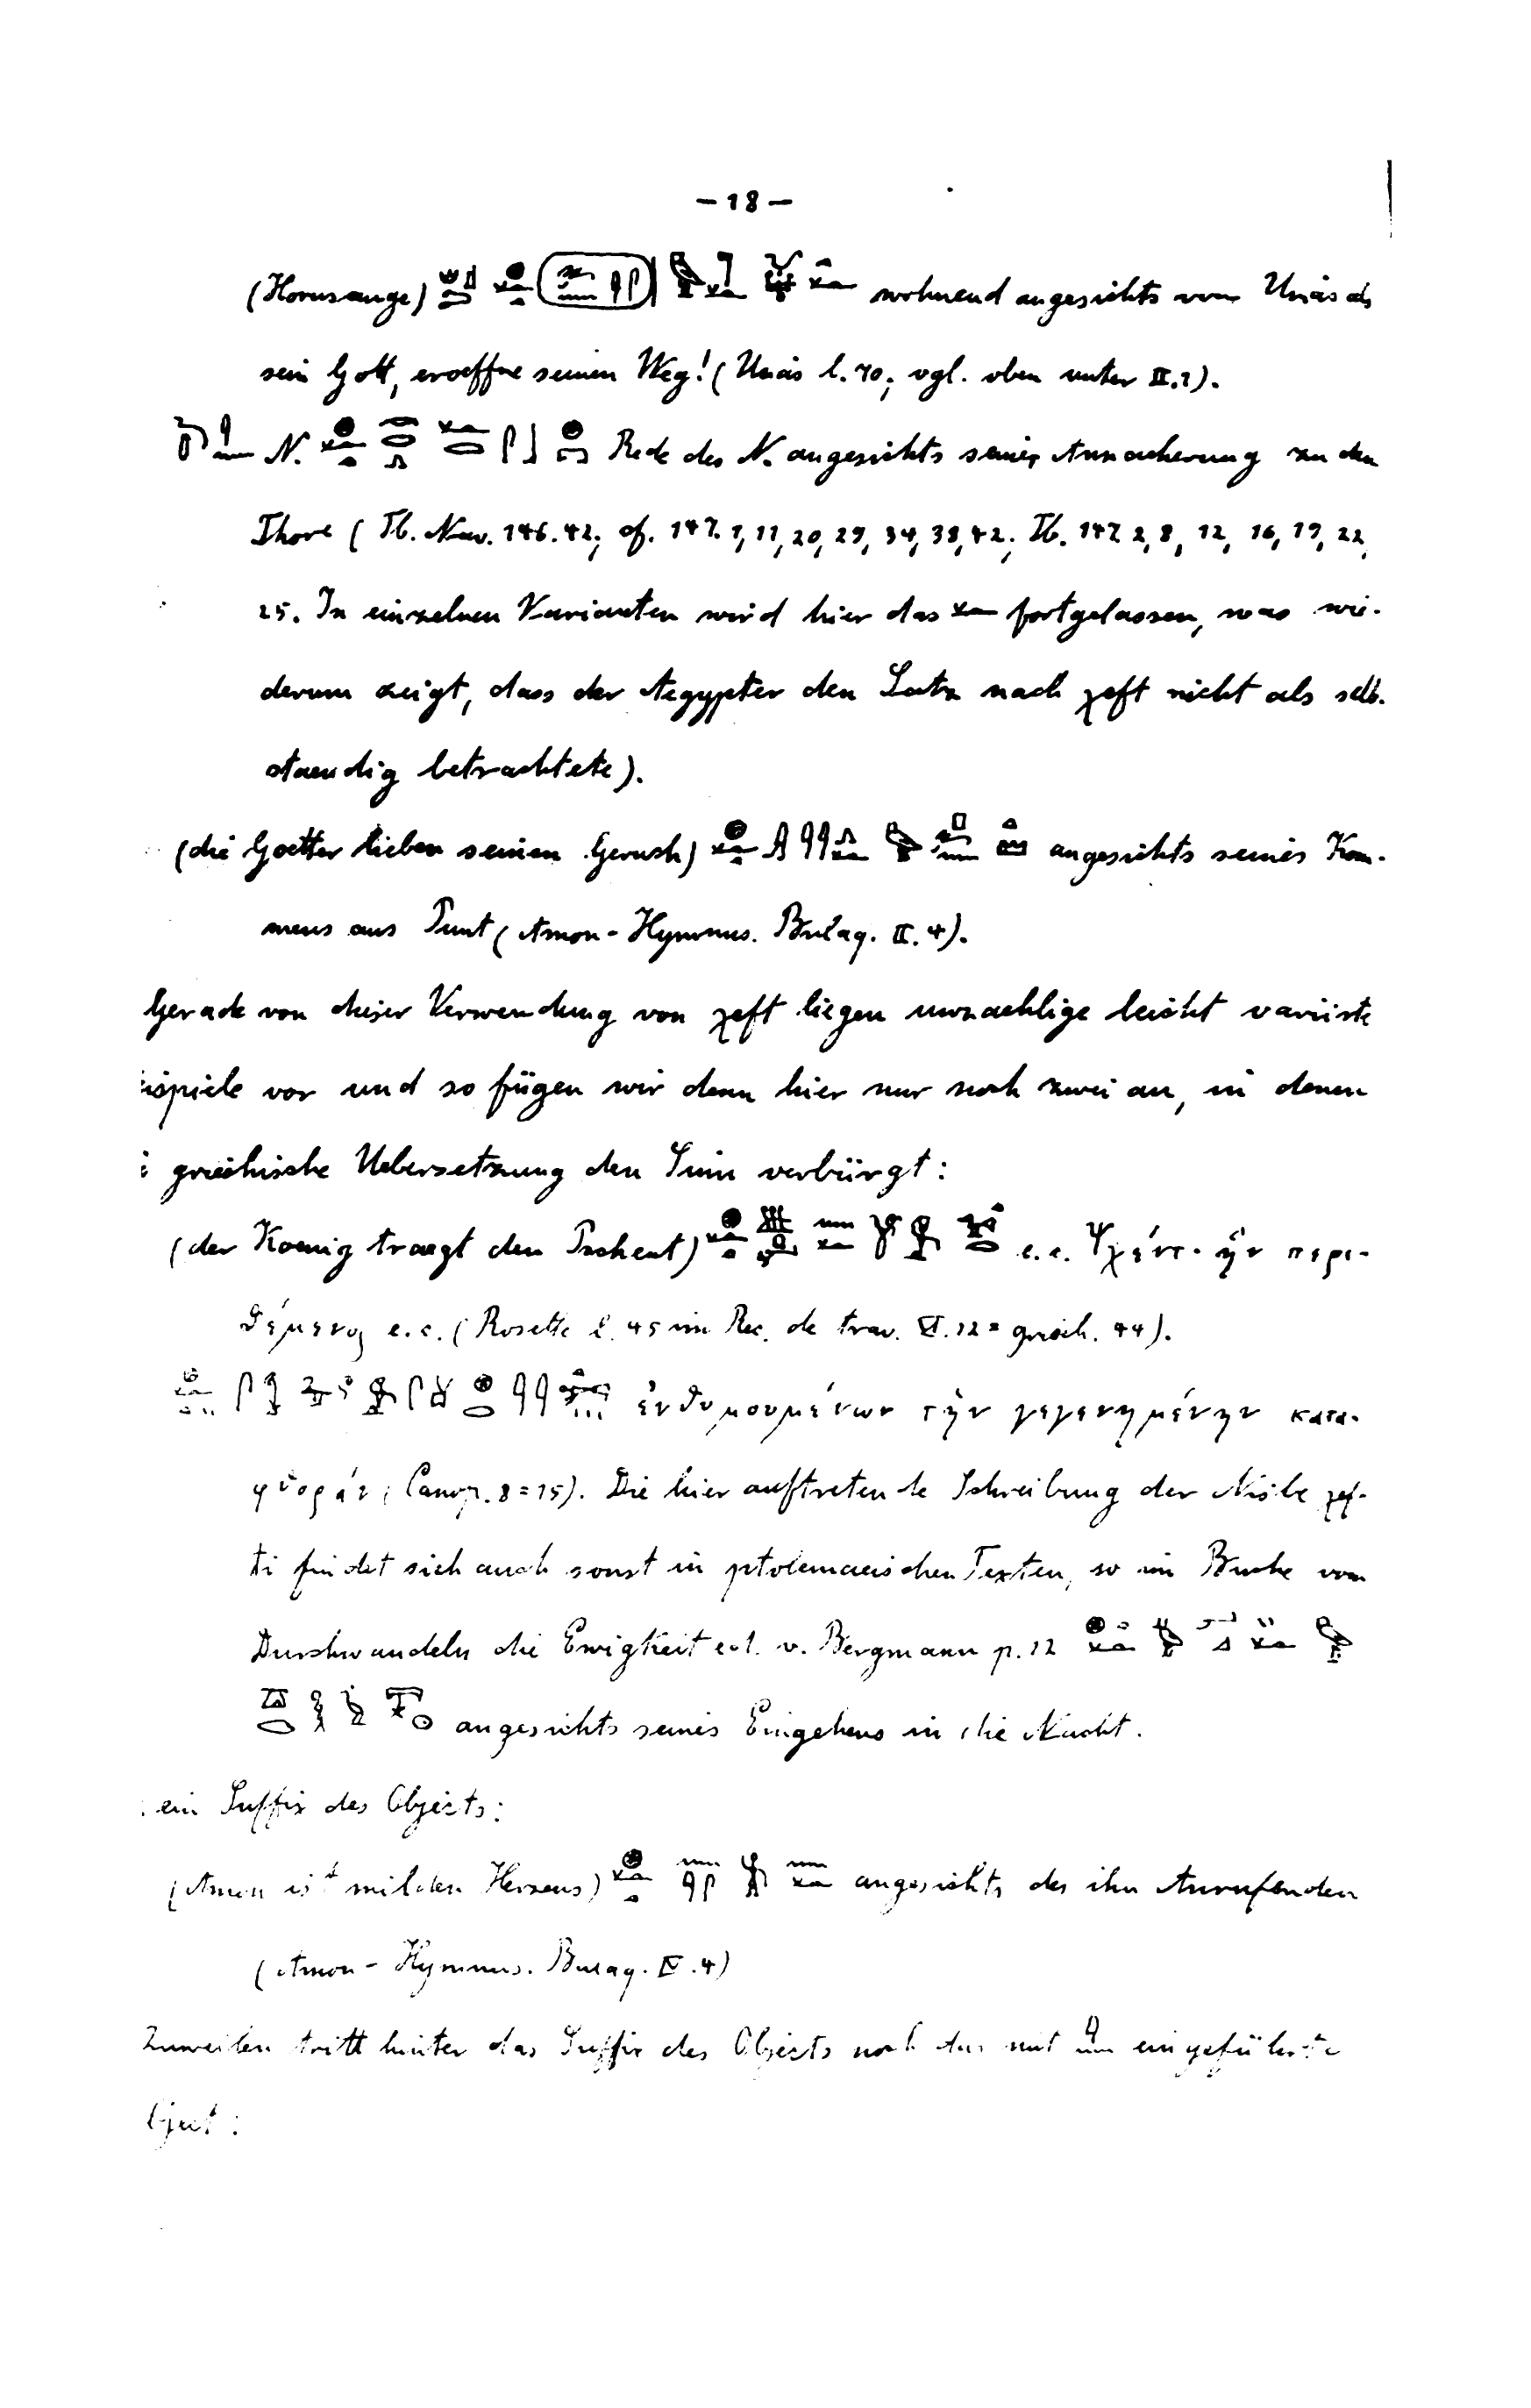 — 18 —
(Horusauge) wohnend angesichts von Unas als
sein Gott, eroeffne seinen Weg! (Unas l. 70; vgl. oben unter II.1).
N. Rede des N. angesichts seiner Annaeherung zu den
Thore (Tb. Nav. 146.42; cf. 147. 1, 11, 20, 29, 34, 38, 42; Tb. 147. 2, 8, 12, 16, 19, 22,
25. In einzelnen Varianten wird hier das fortgelassen, was wie-
derum zeigt, dass der Aegypter den Satz nach χeft nicht als selb-
staendig betrachtete).
(die Goetter lieben seinen Geruch) angesichts seines Kom-
mens aus Punt (Amon-Hymnus. Bulaq. II. 4).
Gerade von dieser Verwendung von χeft liegen unzaehlige leicht variirte
ispiele vor und so fügen wir denn hier nur noch zwei an, in denen
griechische Uebersetzung den Sinn verbürgt:
(der Koenig traegt den Pschent) e.c. Ψχέντ· ἣν περι-
θέμενος e.c. (Rosette l. 45 im Rec. de trav. VI. 12 = griech. 44).
ἐνθυμουμένων τὴν γεγενημένην κατα-
φθοράν (Canop. 8 = 15). Die hier auftretende Schreibung der Nisbe χef-
ti findet sich auch sonst in ptolemaeischen Texten, so im Buche vom
Durchwandeln die Ewigkeit ed. v. Bergmann p. 12
angesichts seines Eingehens in die Nacht.
ein Suffix des Objects:
(Amon ist milden Herzens) angesichts des ihn Anrufenden
(Amon-Hymnus. Bulaq. IV. 4)
Zuweilen tritt hinter das Suffix des Objects noch das mit eingeführte
bject: